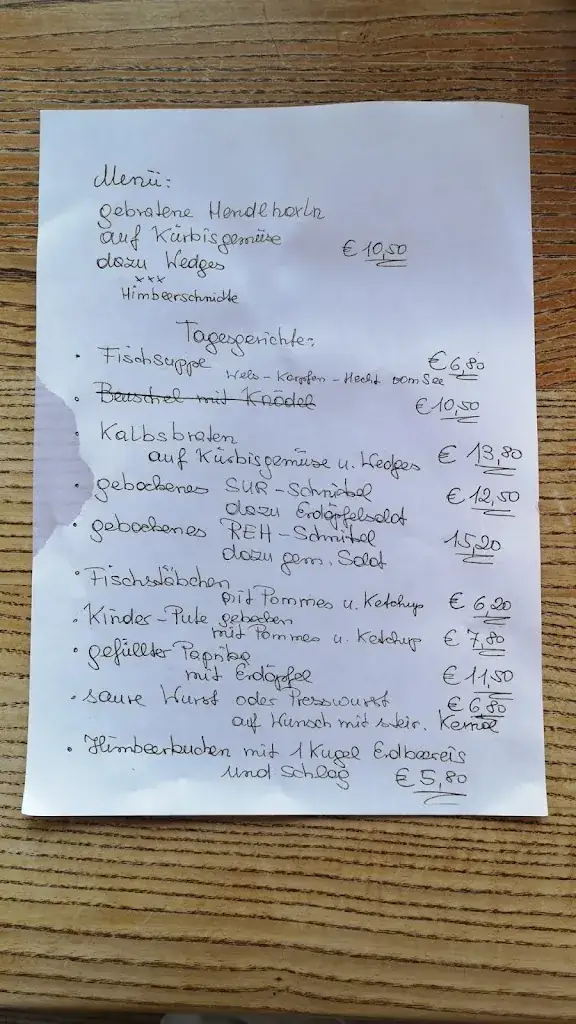 Menü:
gebratene Hendlhaxln
auf Kürbisgemüse
dazu Wedges € 10,50
xxx
Himbeerschnitte
Tagesgerichte:
• Fischsuppe € 6,80
Wels - Karpfen - Hecht vom See
• Beuschel mit Knödel € 10,50
• Kalbsbraten
auf Kürbisgemüse u. Wedges € 13,80
• gebackenes SUR-Schnitzel € 12,50
dazu Erdäpfelsalat
• gebackenes REH-Schnitzel 15,20
dazu gem. Salat
• Fischstäbchen
mit Pommes u. Ketchup € 6,20
• Kinder-Pute gebacken
mit Pommes u. Ketchup € 7,80
• gefüllter Paprika
mit Erdäpfel € 11,50
• saure Wurst oder Presswurst € 6,80
auf Wunsch mit steir. Kernöl
• Himbeerkuchen mit 1 Kugel Erdbeereis
und Schlag € 5,80